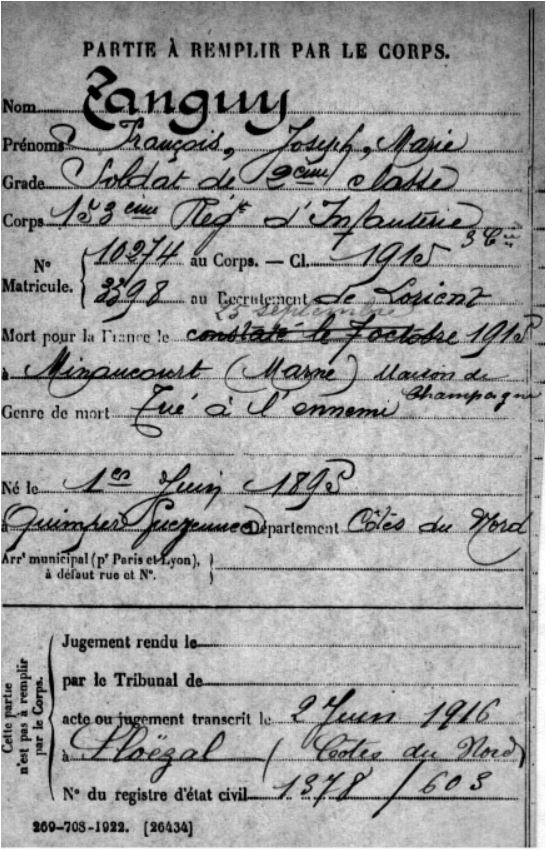 PARTIE À REMPLIR PAR LE CORPS.
Nom Tanguy
Prénoms François, Joseph, Marie
Grade Soldat de 2ème classe
Corps 153ème Régt d'Infanterie
3 Cie
N° Matricule. { 10274 au Corps. — Cl. 1915
2398 au Recrutement de Lorient
25 septembre
Mort pour la France le constaté le 7 octobre 1915
à Minaucourt (Marne) Maison de Champagne
Genre de mort Tué à l'ennemi
Né le 1er Juin 1895
à Quimper Guézennec Département Côtes du Nord
Arrt municipal (pr Paris et Lyon), à défaut rue et N°.
Cette partie n'est pas à remplir par le Corps.
Jugement rendu le
par le Tribunal de
acte ou jugement transcrit le 2 Juin 1916
à Ploëzal (Côtes du Nord)
N° du registre d'état civil 1378/603
269-708-1922. [26434]